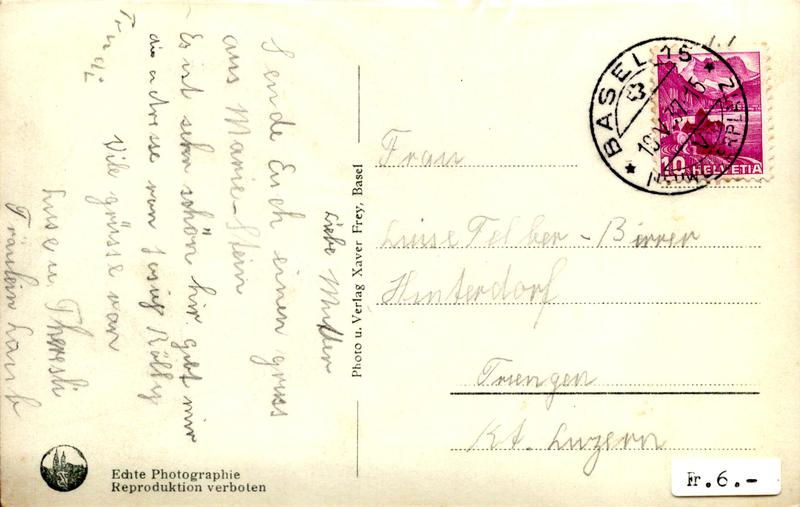 Liebe Mutter
Sende Euch einen gruss
aus Marie-Stein
Es ist sehr schön hir. gebt mir
die adresse von Josüg Rölly
Trudi
Vile grüsse von
Luse u. Theresli
Fräulein Laub
Photo u. Verlag Xaver Frey, Basel
BASEL 15
18.V.37.15
10 HELVETIA
Frau
Luise Felber-Birrer
Hinterdorf
Triengen
Kt. Luzern
Echte Photographie
Reproduktion verboten
Fr.6.-